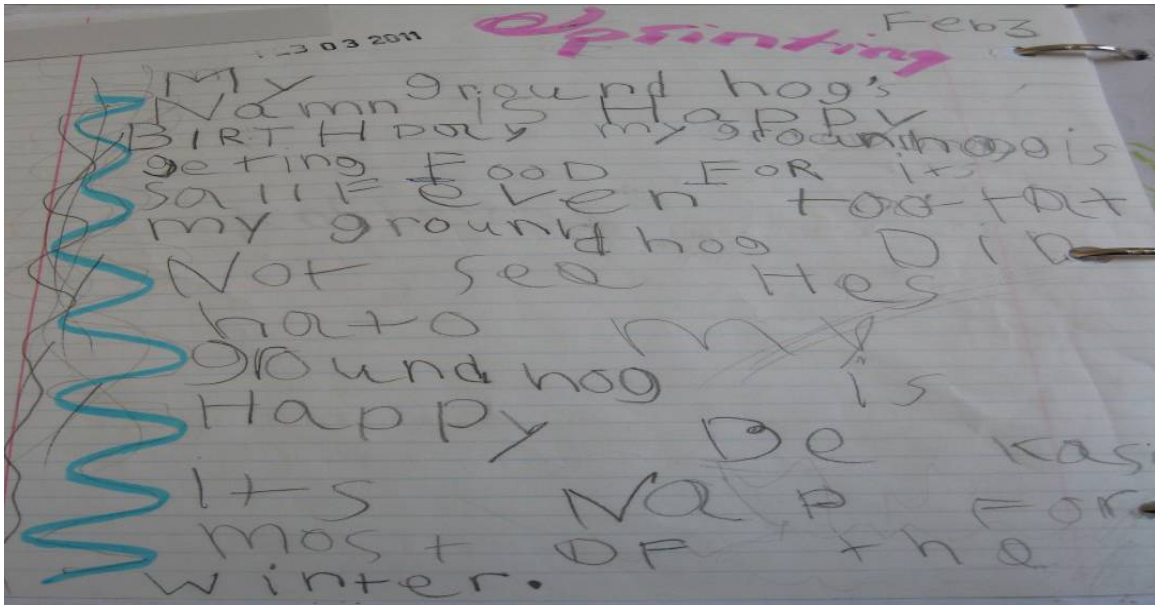 3 03 2011
Sprinting
Feb 3
My ground hog's
Namn is Happy
BIRTHDay my groundhog is
geting FooD FoR its
sallF even too tat
my groundhog DiD
Not see Hes
hato my
groundhog is
Happy Be kas
Its Nap For
most oF the
winter.